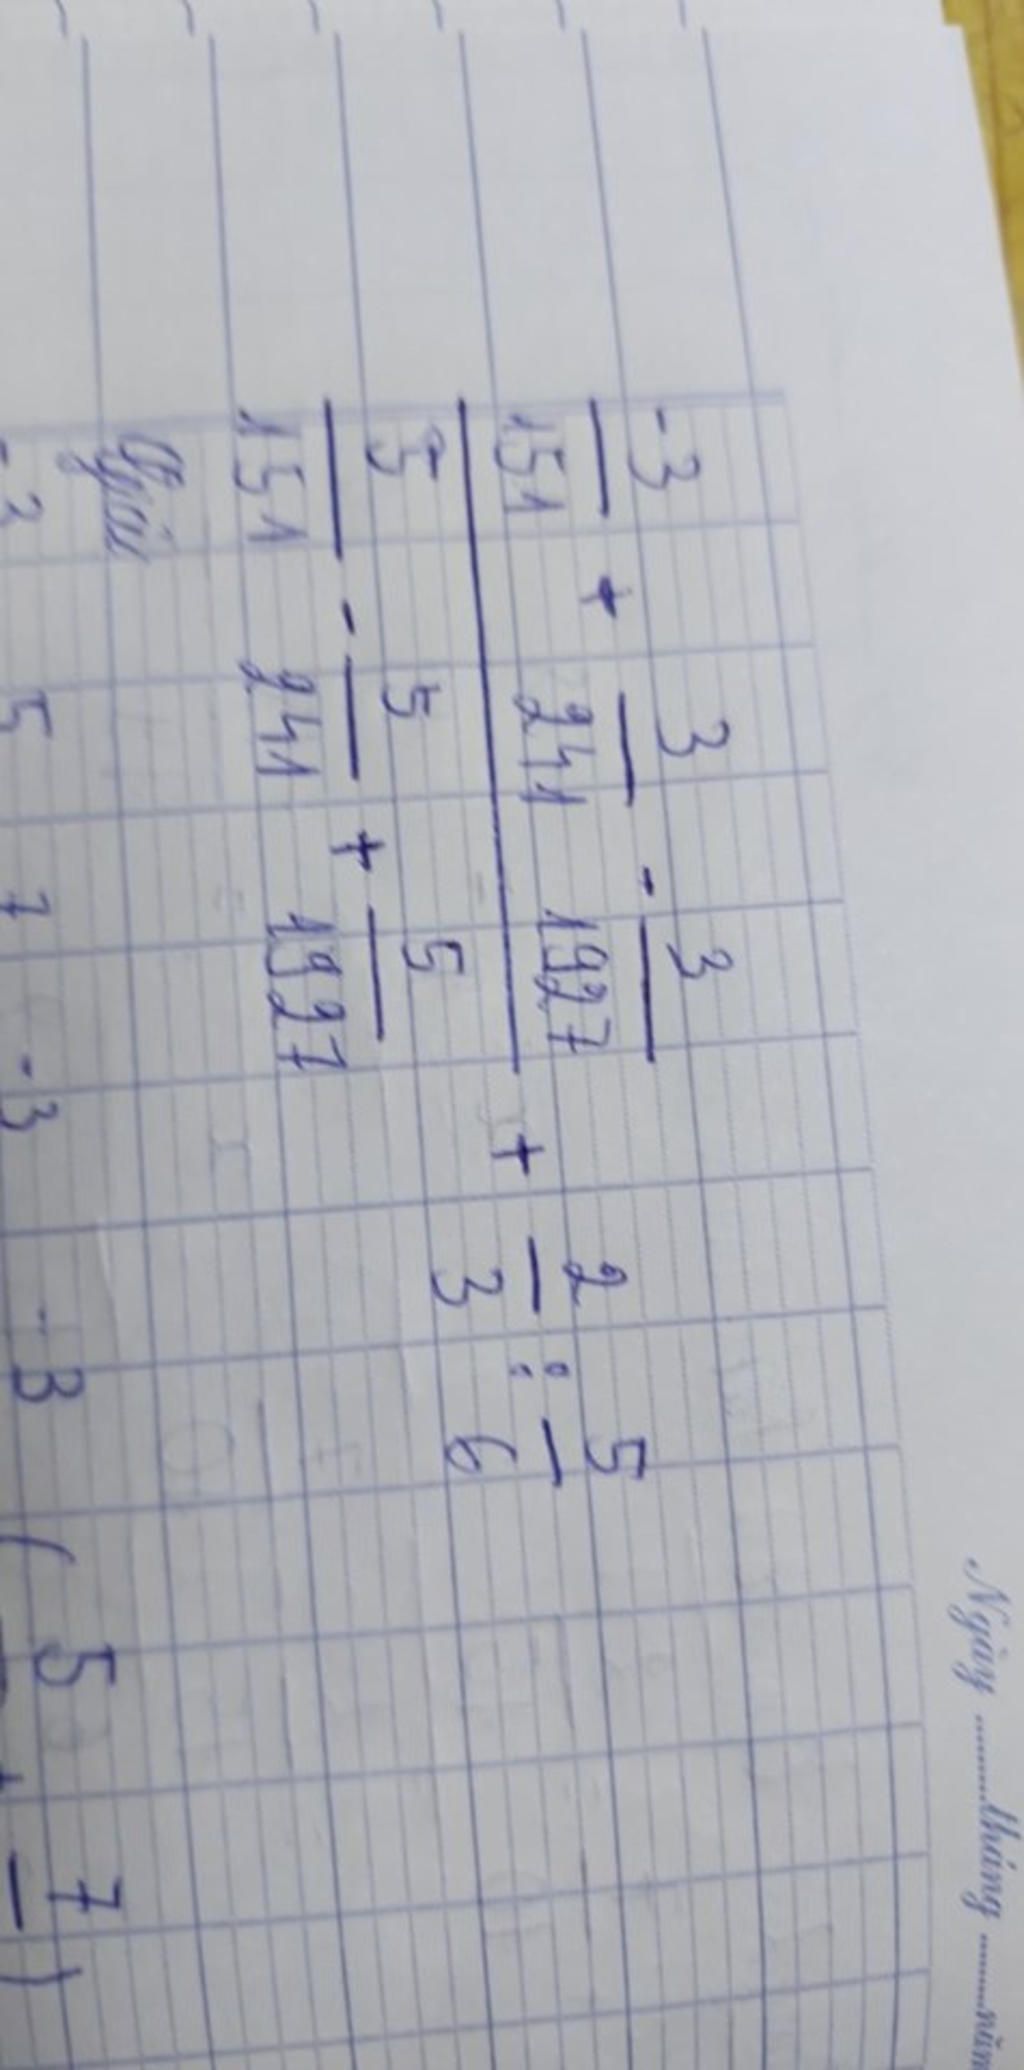 Ngày ........tháng ........năm
-3/151 + 3/241 - 3/1927
5/151 - 5/241 + 5/1927 + 2/3 : 5/6
Giải
-3 5 7 -3 -3 ( 5 + 7 )